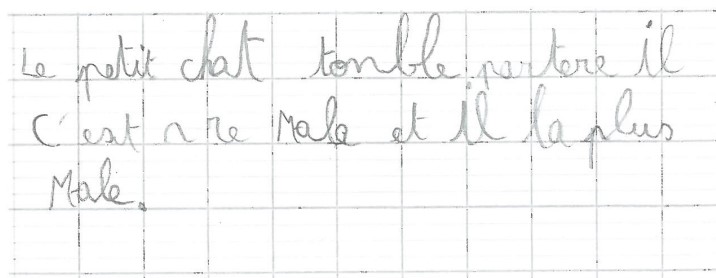 Le petit chat tonble par tere il
C'est n re Male et il la plus
Male.